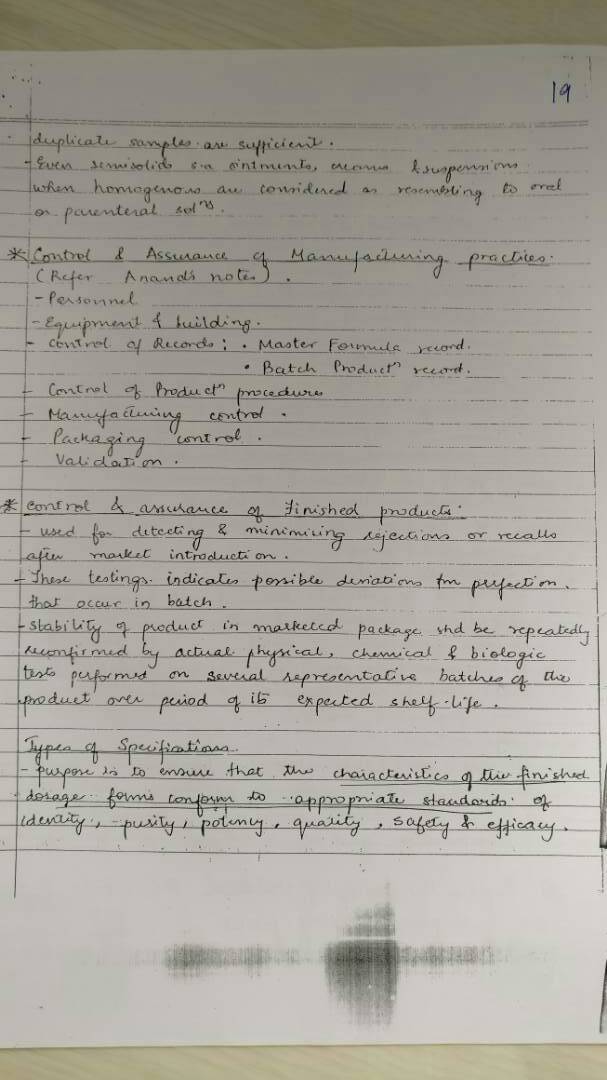 19
duplicate samples are sufficient.
- Even semisolids s.a ointments, creams & suspensions
when homogenous are considered as resembling to oral
or parenteral solns.
* Control & Assurance of Manufacturing practices.
(Refer Anand's notes).
- Personnel
- Equipment & building.
- Control of Records: • Master Formula record.
• Batch Productn record.
- Control of Productn procedures
- Manufacturing control.
- Packaging control.
- Validation.
* Control & assurance of Finished products:
- used for detecting & minimizing rejections or recalls
after market introduction.
- These testings indicates possible deviations fm perfection
that occur in batch.
- Stability of product in marketed package shd be repeatedly
reconfirmed by actual physical, chemical & biologic
tests performed on several representative batches of the
product over period of its expected shelf-life.
Types of Specifications
- purpose is to ensure that the characteristics of the finished
dosage forms conform to appropriate standards of
identity, purity, potency, quality, safety & efficacy.